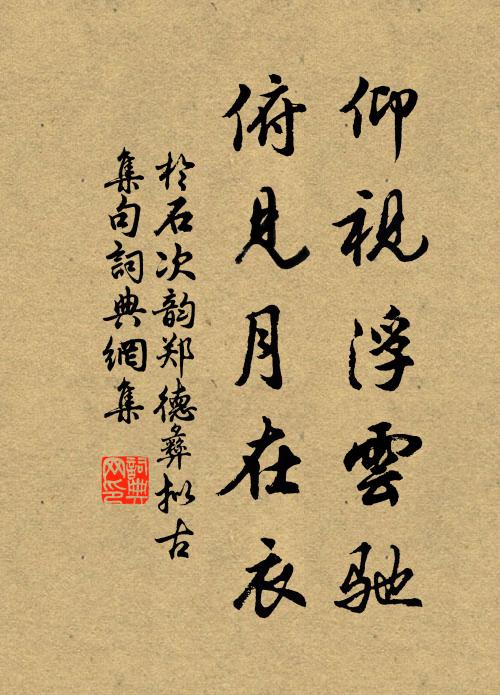 仰視浮雲馳
俯見月在衣
於石次韵郑德彝拟古
集句詞典網集
詞典网印